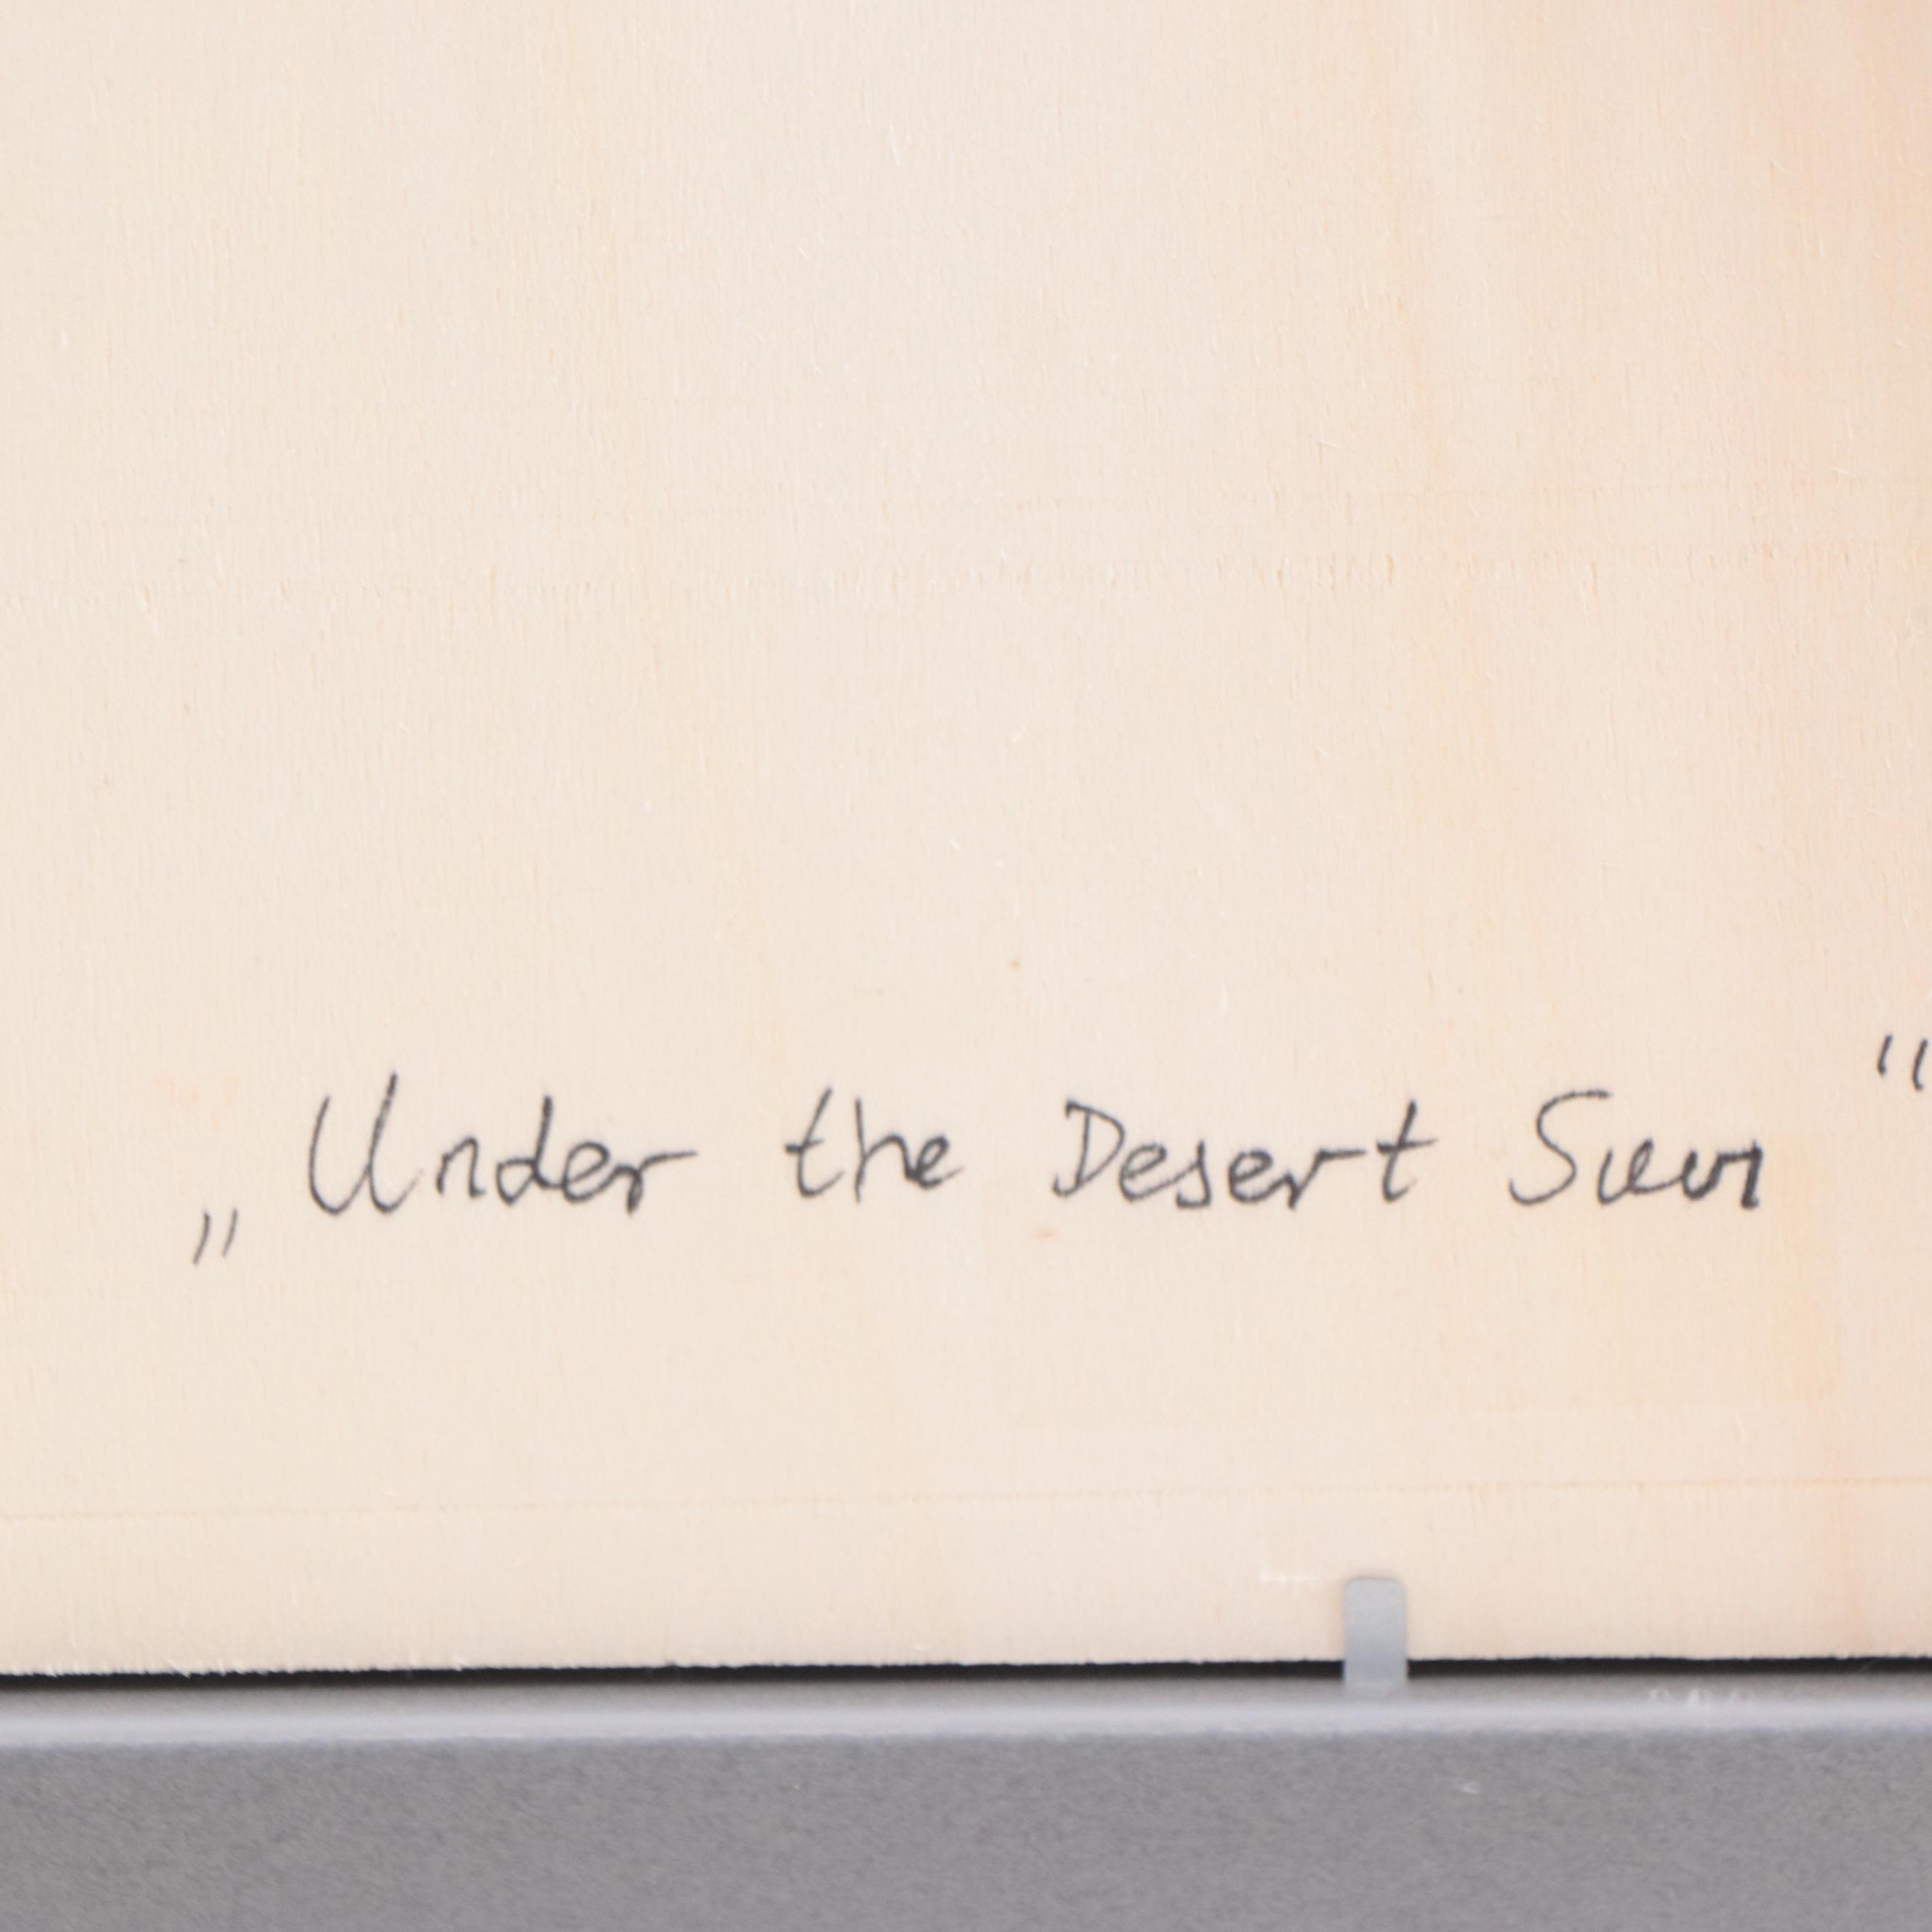 „Under the Desert Sun"